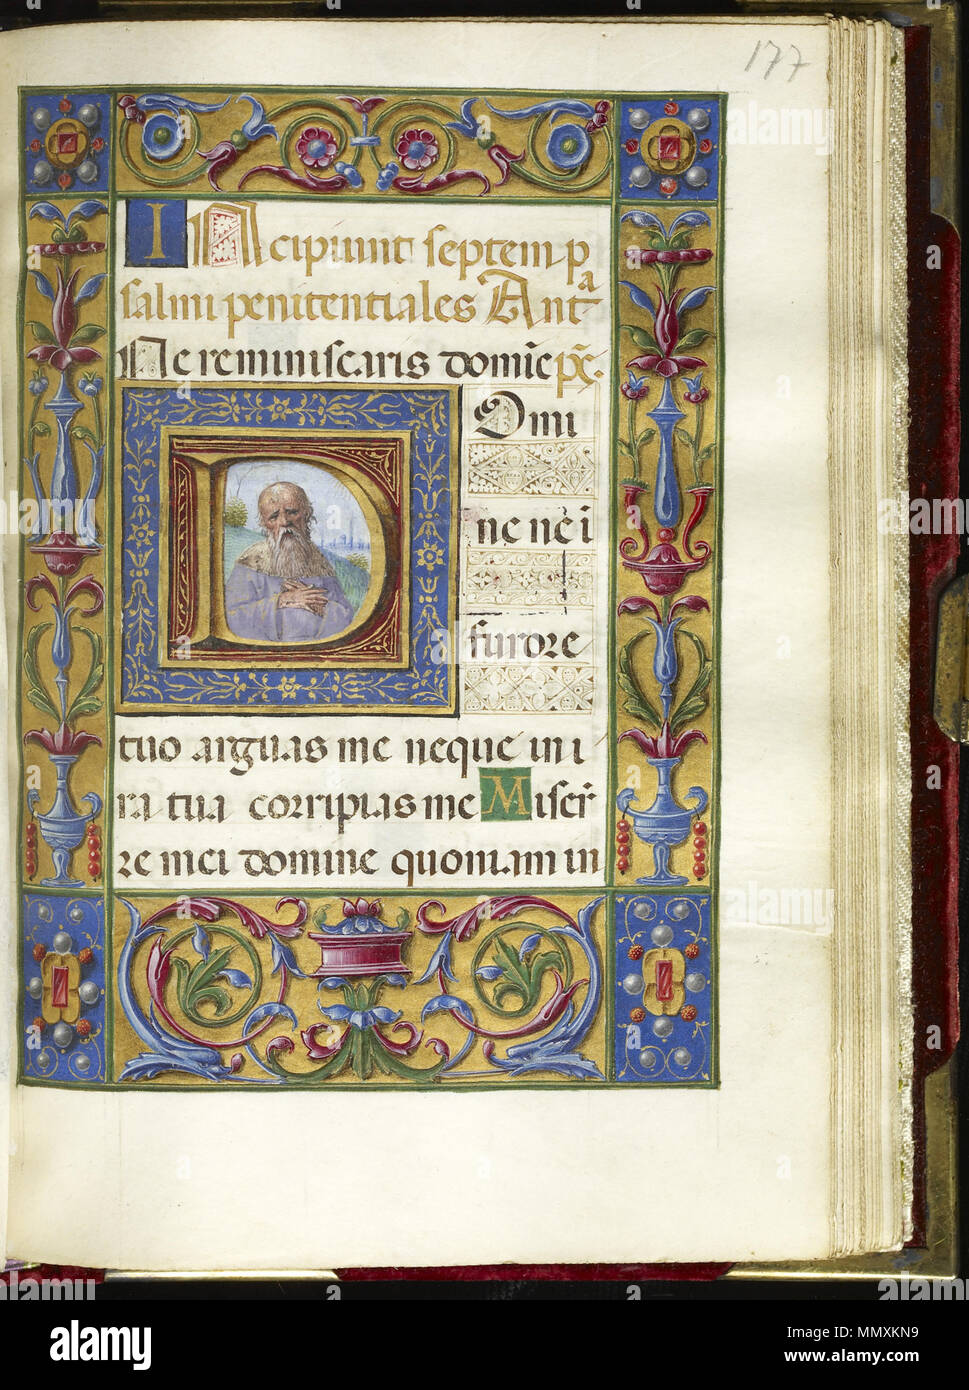 177
INcipiunt septem p
salmi penitentiales Anta
Ne reminiscaris domie ps.
Domi
ne ne i
furore
tuo arguas me neque in i
ra tua corripias me Miser
re mei domine quoniam in
alamy
Image ID: MMXKN9
www.alamy.com